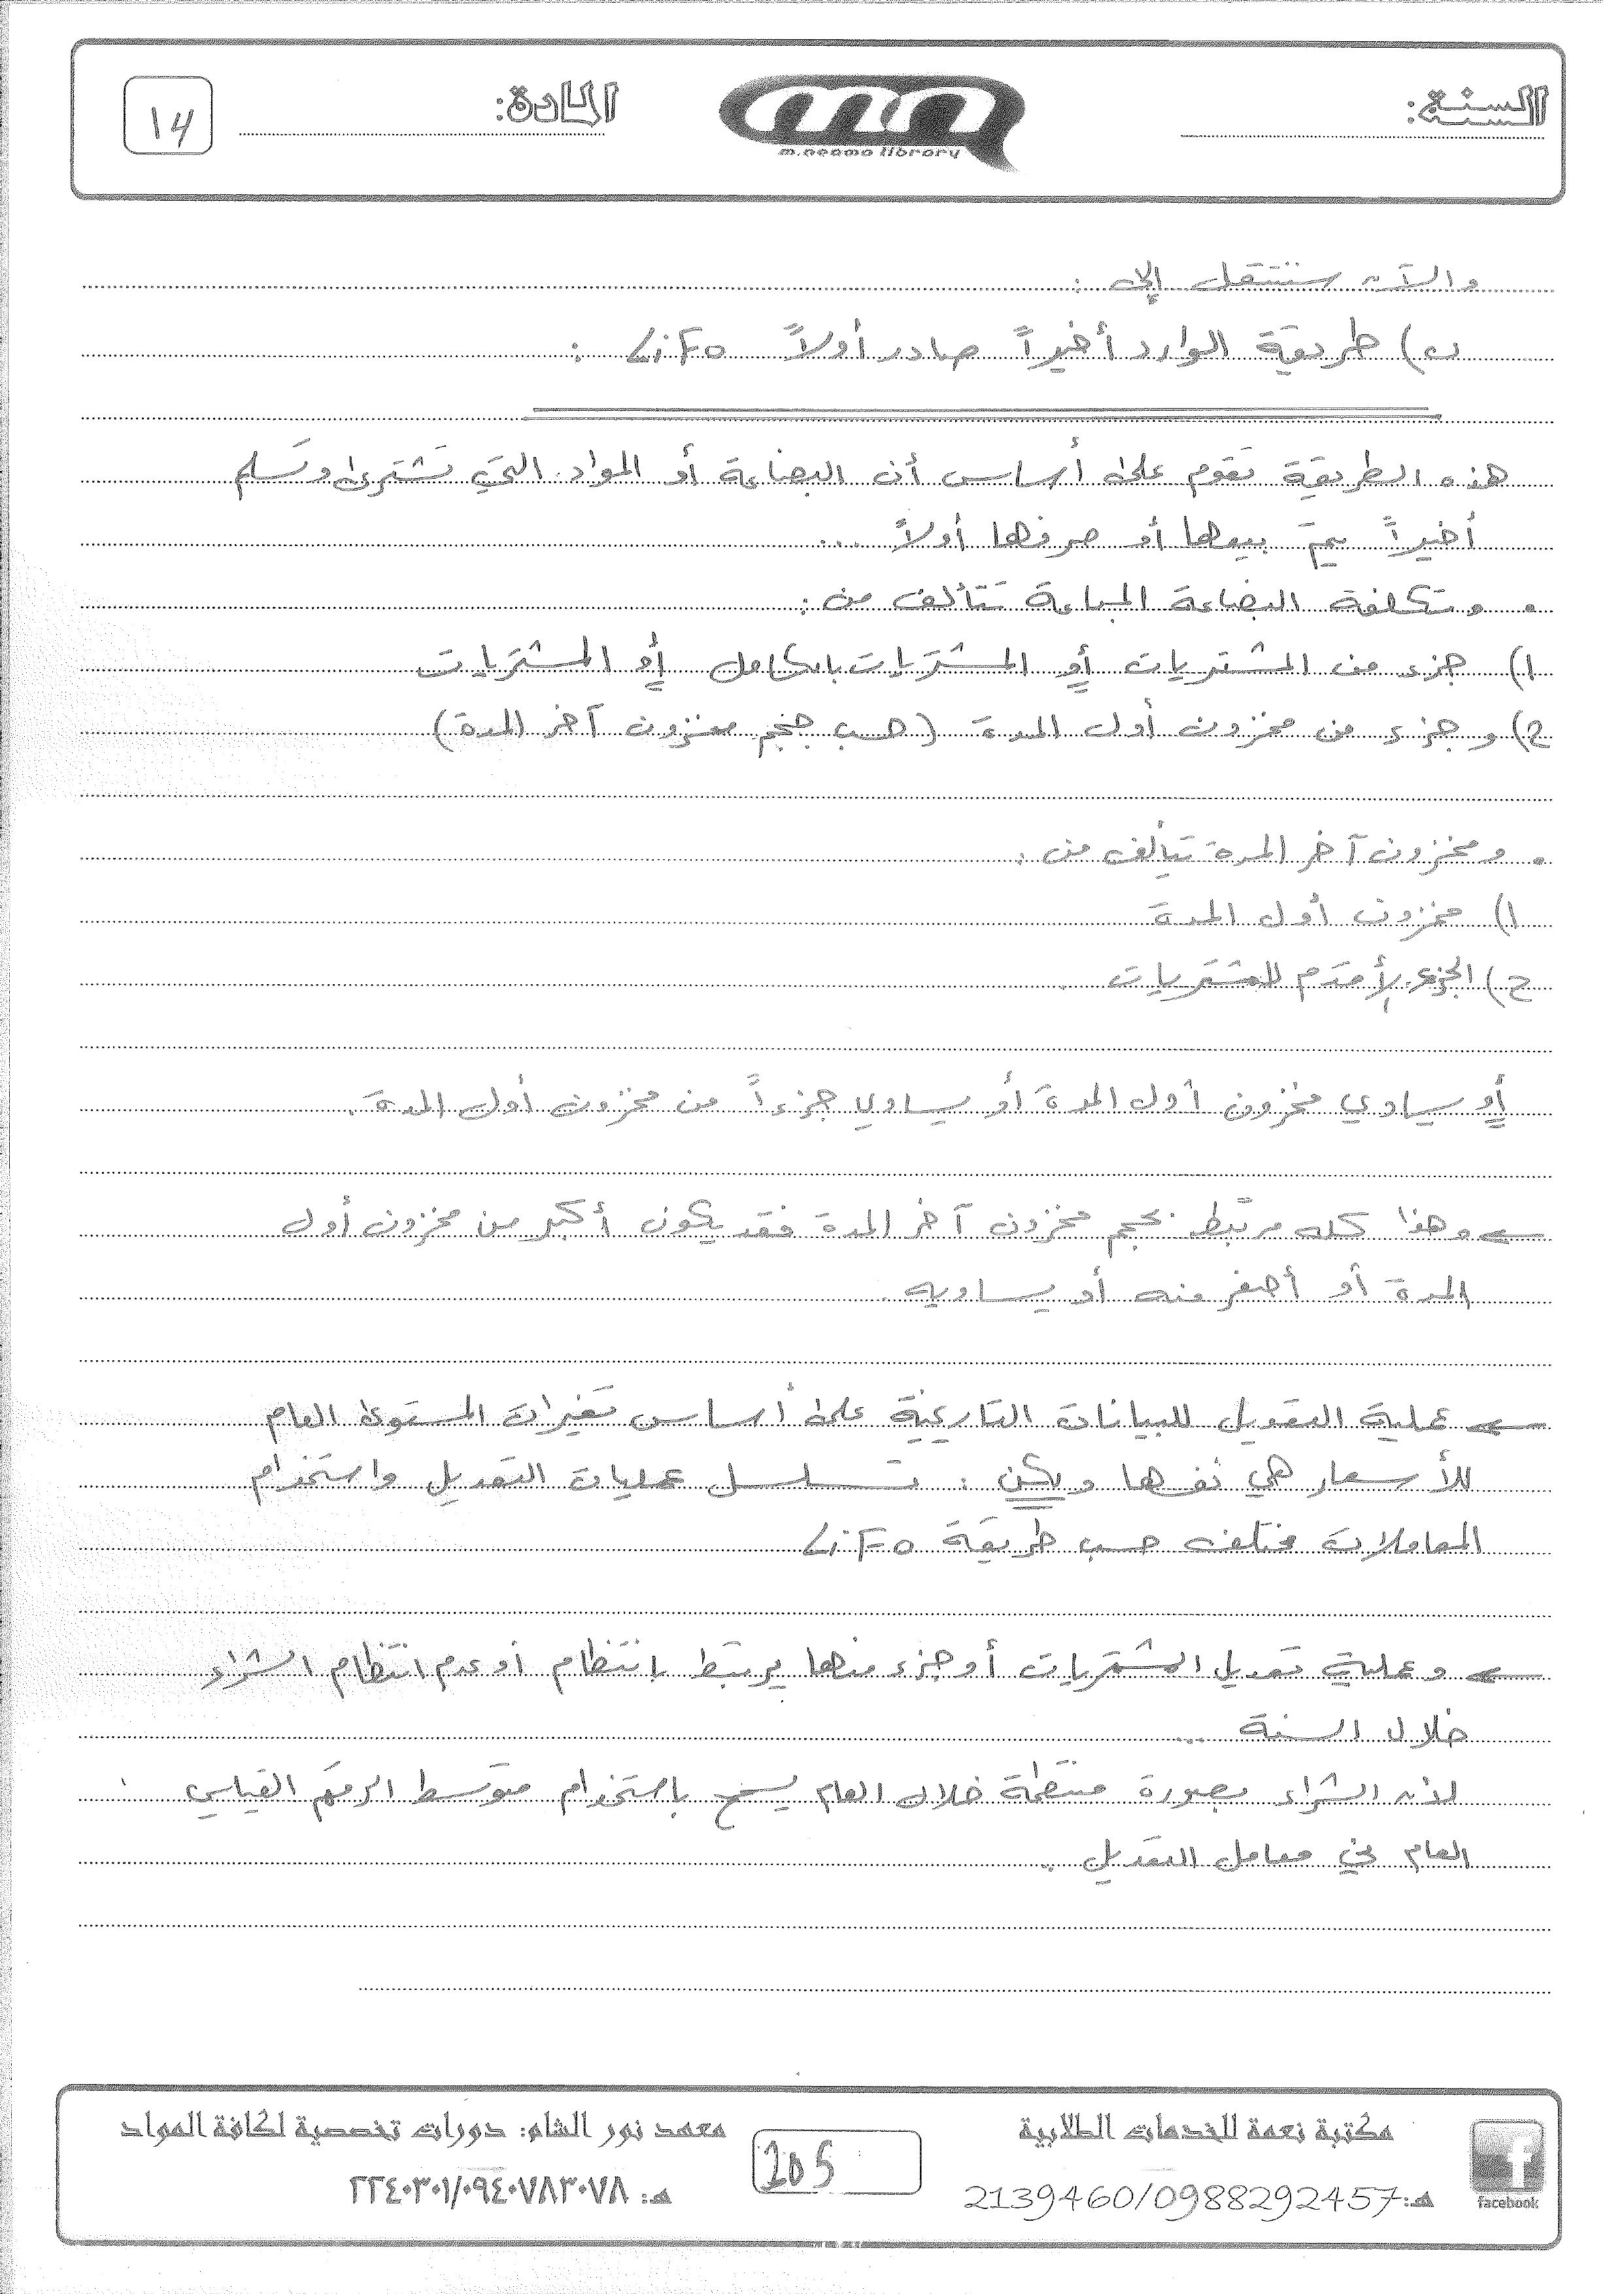 السنة:
m.neama library
المادة:
١٤
والآن سننتقل إلى :
ب) طريقة الوارد أخيراً صادر أولاً LiFo :
هذه الطريقة تقوم على أساس أن البضاعة أو المواد التي تشترى وتسلم
أخيراً يتم بيعها أو صرفها أولاً ...
• وتكلفة البضاعة المباعة تتألف من :
1) جزء من المشتريات أو المشتريات بالكامل أو المشتريات
2) وجزء من مخزون أول المدة (حسب حجم مخزون آخر المدة)
• ومخزون آخر المدة يتألف من :
1) مخزون أول المدة
2) الجزء الأقدم للمشتريات
أو يساوي مخزون أول المدة أو يساوي جزءاً من مخزون أول المدة .
وهذا كله مرتبط بحجم مخزون آخر المدة فقد يكون أكبر من مخزون أول
المدة أو أصغر منه أو يساويه .
عملية التعديل للبيانات التاريخية على أساس تغيرات المستوى العام
للأسعار هي نفسها ولكن : تسلسل عمليات التعديل واستخدام
المعاملات مختلف حسب طريقة LiFo
وعملية تعديل المشتريات أو جزء منها يرتبط بانتظام أو عدم انتظام الشراء
خلال السنة ...
لأن الشراء بصورة منتظمة خلال العام يسمح باستخدام متوسط الرقم القياسي
العام في معامل التعديل .
مكتبة نعمة للخدمات الطلابية
هـ: 2139460/0988292457
facebook
205
معهد نور الشام: دورات تخصصية لكافة المواد
هـ: ٢٢٤٠٣٠١/٠٩٤٠٧٨٣٠٧٨